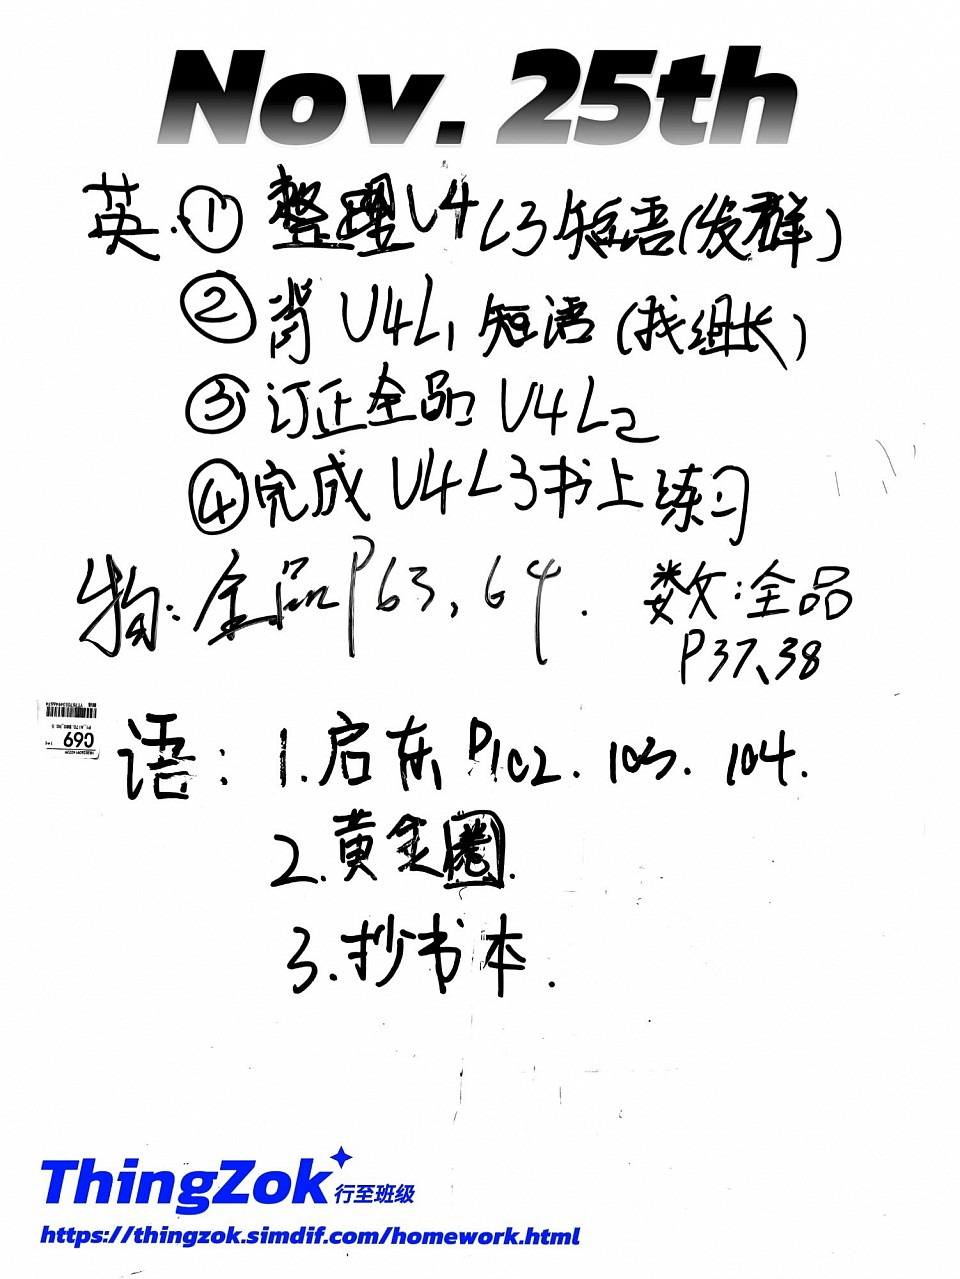 Nov. 25th
英.① 整理U4 L3短语(发群)
② 背 U4L1 短语 (找组长)
③ 订正全品 U4L2
④ 完成 U4L3书上练习
物:全品P63,64.
数:全品
P37、38
语:1.启东 P102.103.104.
2.黄金圈.
3.抄书本.
C69
ThingZok 行至班级
https://thingzok.simdif.com/homework.html